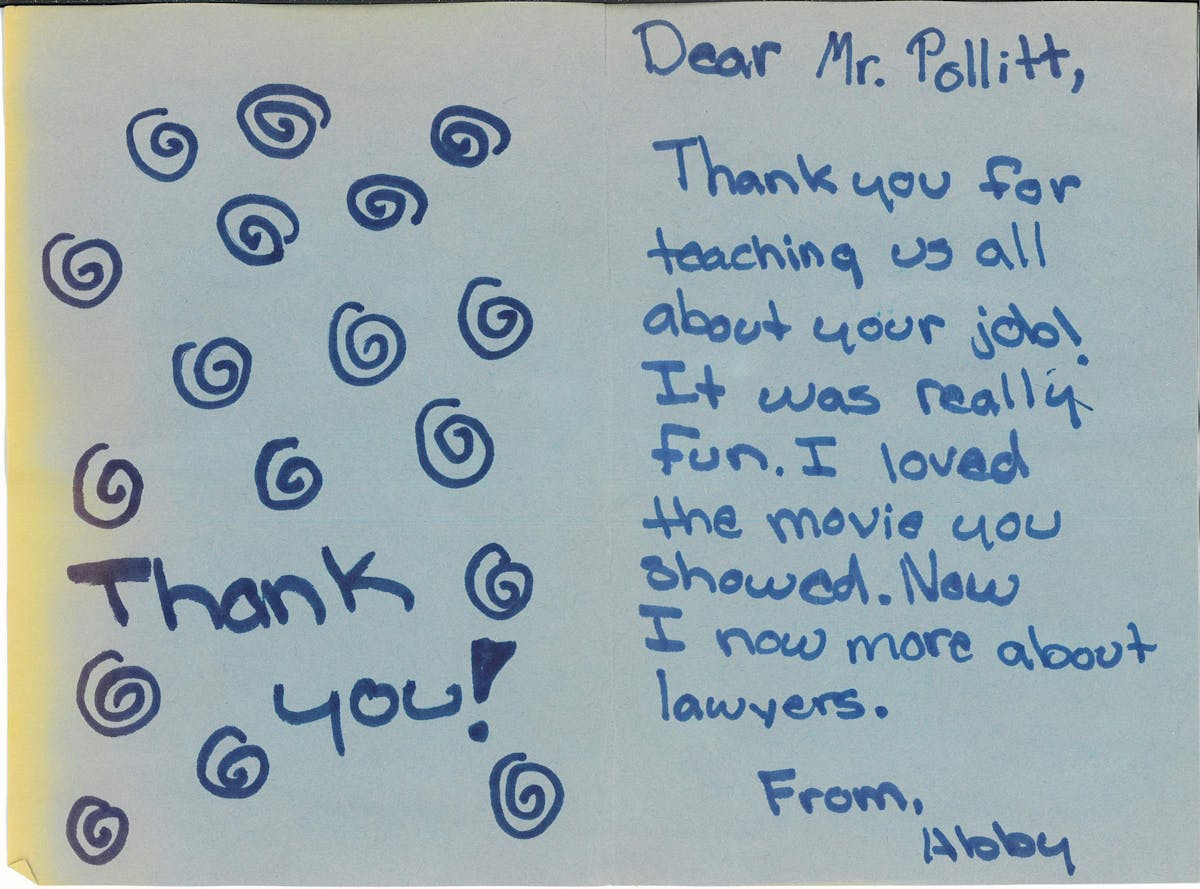 Thank
you!
Dear Mr. Pollitt,
Thank you for
teaching us all
about your job!
It was really
fun. I loved
the movie you
showed. Now
I now more about
lawyers.
From,
Abby